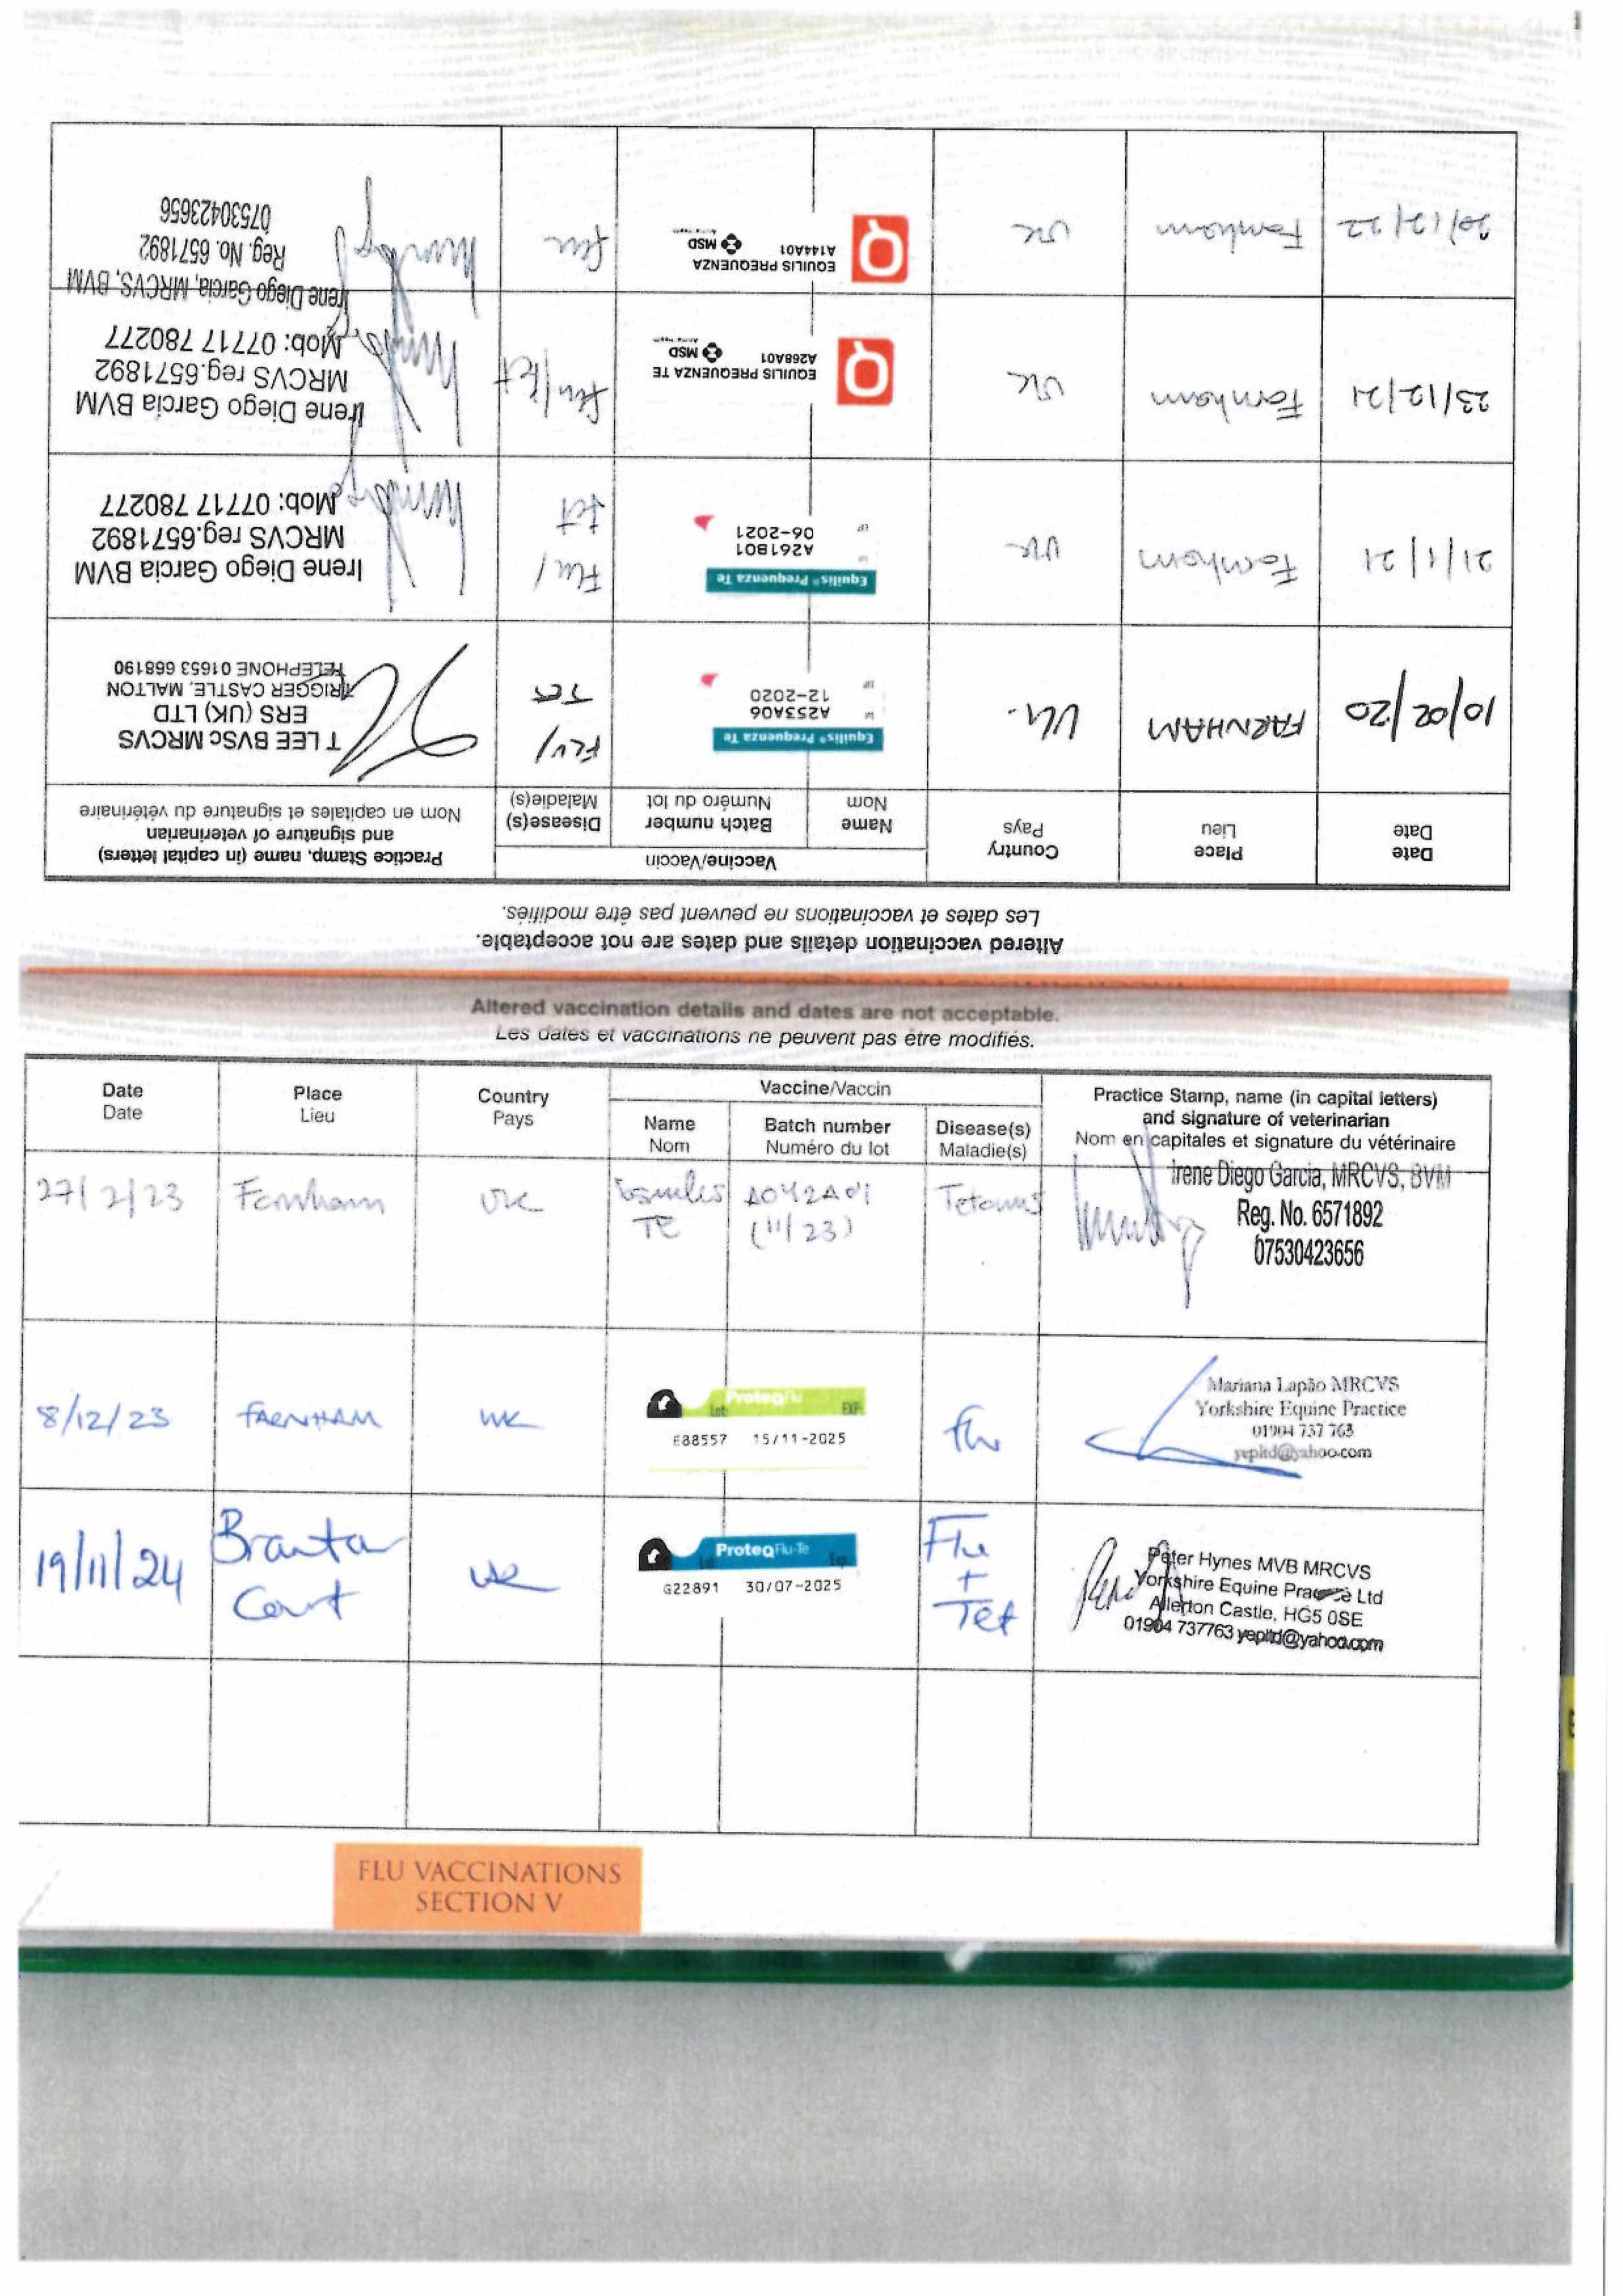 Altered vaccination details and dates are not acceptable.
Les dates et vaccinations ne peuvent pas être modifiés.
Date
Date
Place
Lieu
Country
Pays
Vaccine/Vaccin
Name
Nom
Batch number
Numéro du lot
Disease(s)
Maladie(s)
Practice Stamp, name (in capital letters)
and signature of veterinarian
Nom en capitales et signature du vétérinaire
10/02/20
FARNHAM
UK.
Equilis® Prequenza Te
A253A06
12-2020
FLU/
TET
T LEE BVSc MRCVS
ERS (UK) LTD
TRIGGER CASTLE, MALTON
TELEPHONE 01653 668190
21/1/21
Farnham
UK
Equilis® Prequenza Te
A261B01
06-2021
Flu/
tet
Irene Diego Garcia BVM
MRCVS reg.6571892
Mob: 07717 780277
23/12/21
Farnham
UK
EQUILIS PREQUENZA TE
A268A01
MSD
flu/tet
Irene Diego Garcia BVM
MRCVS reg.6571892
Mob: 07717 780277
20/12/22
Farnham
UK
EQUILIS PREQUENZA
A144A01
MSD
flu
Irene Diego Garcia, MRCVS, BVM
Reg. No. 6571892
07530423656
Altered vaccination details and dates are not acceptable.
Les dates et vaccinations ne peuvent pas être modifiés.
Date
Date
Place
Lieu
Country
Pays
Vaccine/Vaccin
Name
Nom
Batch number
Numéro du lot
Disease(s)
Maladie(s)
Practice Stamp, name (in capital letters)
and signature of veterinarian
Nom en capitales et signature du vétérinaire
27/2/23
Farnham
UK
TE
A042A01
(11/23)
Tetanus
Irene Diego Garcia, MRCVS, BVM
Reg. No. 6571892
07530423656
8/12/23
FARNHAM
UK
ProteqFlu
Lot: EXP:
E88557 15/11-2025
flu
Mariana Lapão MRCVS
Yorkshire Equine Practice
01904 737 763
yepltd@yahoo.com
19/11/24
Branta
Court
UK
ProteqFlu-Te
G22891 30/07-2025
Flu
+
Tet
Peter Hynes MVB MRCVS
Yorkshire Equine Practice Ltd
Allerton Castle, HG5 0SE
01904 737763 yepltd@yahoo.com
FLU VACCINATIONS
SECTION V